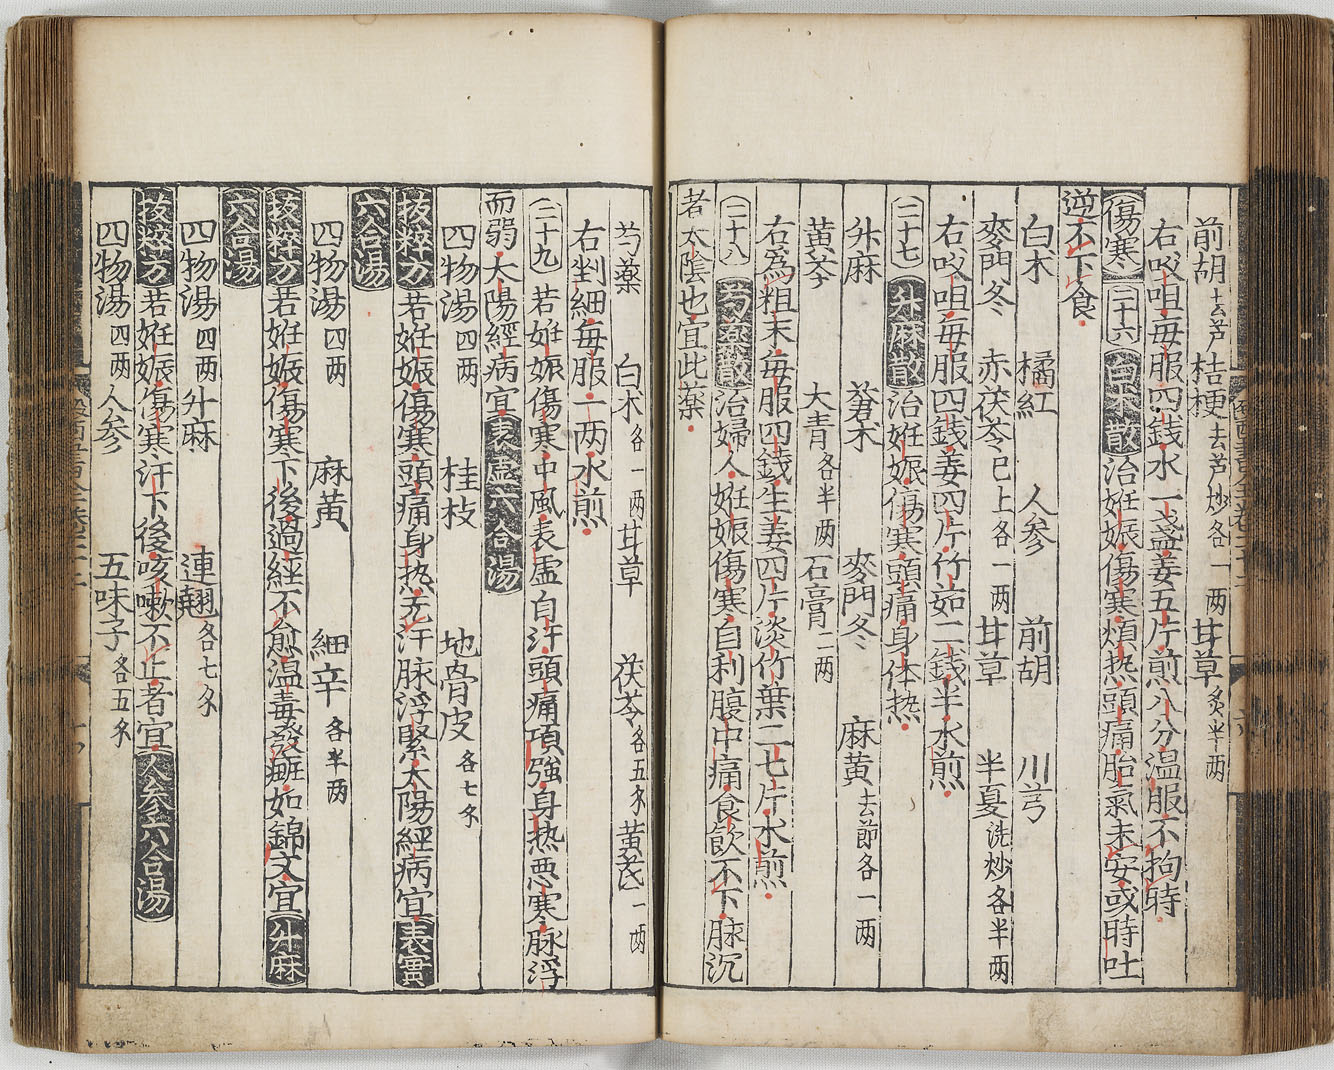 前胡去芦 桔梗去芦炒各一两 甘草炙半两
右㕮咀毎服四錢水一盞姜五片煎八分温服不拘時
傷寒 二十六 白术散 治妊娠傷寒煩热頭痛胎氣未安或時吐
逆不下食
白术 橘紅 人参 前胡 川芎
麥門冬 赤茯苓已上各一两 甘草 半夏洗炒各半两
右㕮咀毎服四錢姜四片竹茹二錢半水煎
二十七 升麻散 治妊娠傷寒頭痛身体热
升麻 蒼术 麥門冬 麻黄去節各一两
黄芩 大青各半两 石膏二两
右為粗末毎服四錢生姜四片淡竹葉二七片水煎
二十八 芍薬散 治婦人妊娠傷寒自利腹中痛食飲不下脉沉
者太陰也宜此薬
芍薬 白术各一两 甘草 茯苓各五分 黄芪一两
右剉細毎服一两水煎
二十九 若妊娠傷寒中風表虚自汗頭痛項強身热悪寒脉浮
而弱太陽經病宜表虚六合湯
四物湯四两 桂枝 地骨皮各七分
抜粹方 若妊娠傷寒頭痛身热无汗脉浮緊太陽經病宜表實
六合湯
四物湯四两 麻黄 細辛各半两
抜粹方 若妊娠傷寒下後過經不愈温毒發班如錦文宜升麻
六合湯
四物湯四两 升麻 連翹各七分
抜粹方 若妊娠傷寒汗下後咳嗽不止者宜人參六合湯
四物湯四两 人参 五味子各五分